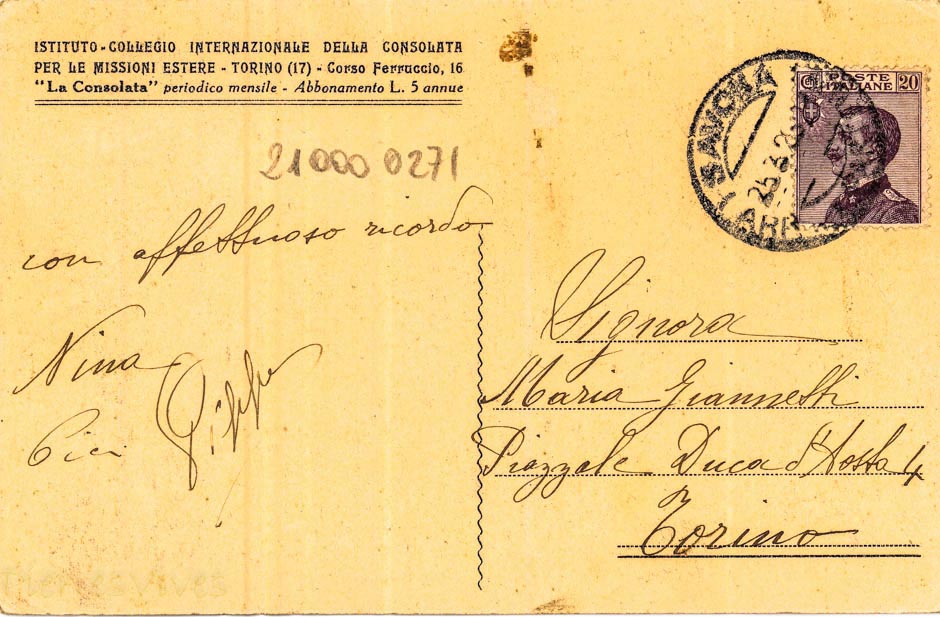 ISTITUTO-COLLEGIO INTERNAZIONALE DELLA CONSOLATA
PER LE MISSIONI ESTERE - TORINO (17) - Corso Ferruccio, 16
"La Consolata" periodico mensile - Abbonamento L. 5 annue
21000 0271
con affettuoso ricordo
Nina
Cici Pippo
SAVONA
ARR
POSTE ITALIANE 20
Signora
Maria Giannetti
Piazzale Duca d'Aosta 4
Torino
ThemesVives